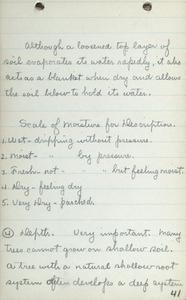 Although a loosened top layer of
soil evaporates its water rapidly, it also
acts as a blanket when dry and allows
the soil below to hold its water.
Scale of Moisture for Description.
1. Wet - dripping without pressure.
2. Moist - " by pressure.
3. Fresh - not " " but feeling moist.
4. Dry - feeling dry
5. Very Dry - parched.
(4) Depth. Very important. Many
trees cannot grow on shallow soil.
A tree with a natural shallow root
system often develops a deep system
41